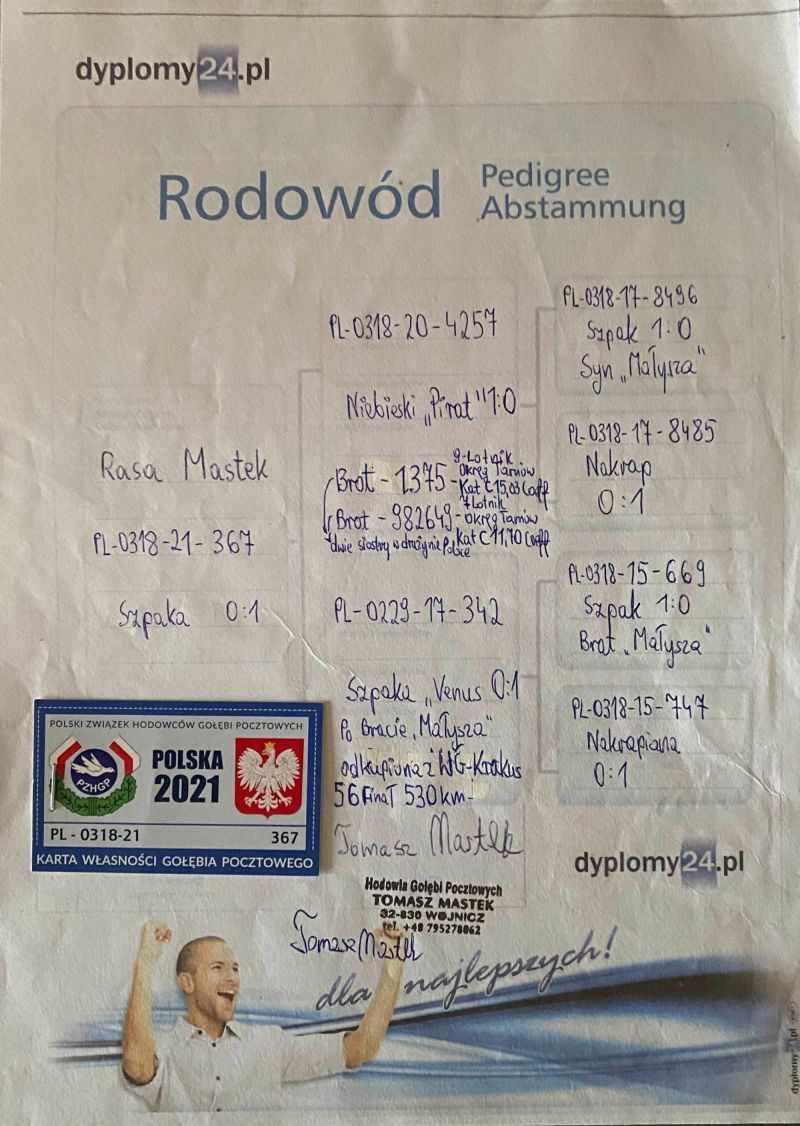 dyplomy24.pl
Rodowód
Pedigree
Abstammung
Rasa Mastek
PL-0318-21-367
Szpaka 0:1
PL-0318-20-4257
Niebieski „Pirat" 1:0
Brat - 1375 - 9-Lotnik
Okręg Tarnów
Kat C 15,03 Coeff
Brat - 982649 - 7 Lotnik
Okręg Tarnów
Kat C 11,70 Coeff
dwie siostry w drużynie Polsce
PL-0229-17-342
Szpaka „Venus 0:1
Po Bracie „Małysza"
odkupiona z WG-Krakus
56 Finał 530km-
Tomasz Mastek
PL-0318-17-8496
Szpak 1:0
Syn „Małysza"
PL-0318-17-8485
Nakrap
0:1
PL-0318-15-669
Szpak 1:0
Brat „Małysza"
PL-0318-15-747
Nakrapiana
0:1
POLSKI ZWIĄZEK HODOWCÓW GOŁĘBI POCZTOWYCH
PZHGP
POLSKA
2021
PL - 0318-21 367
KARTA WŁASNOŚCI GOŁĘBIA POCZTOWEGO
dyplomy24.pl
Hodowla Gołębi Pocztowych
TOMASZ MASTEK
32-830 WOJNICZ
tel. +48 795278062
Tomasz Mastek
dla najlepszych!
dyplomy24.pl